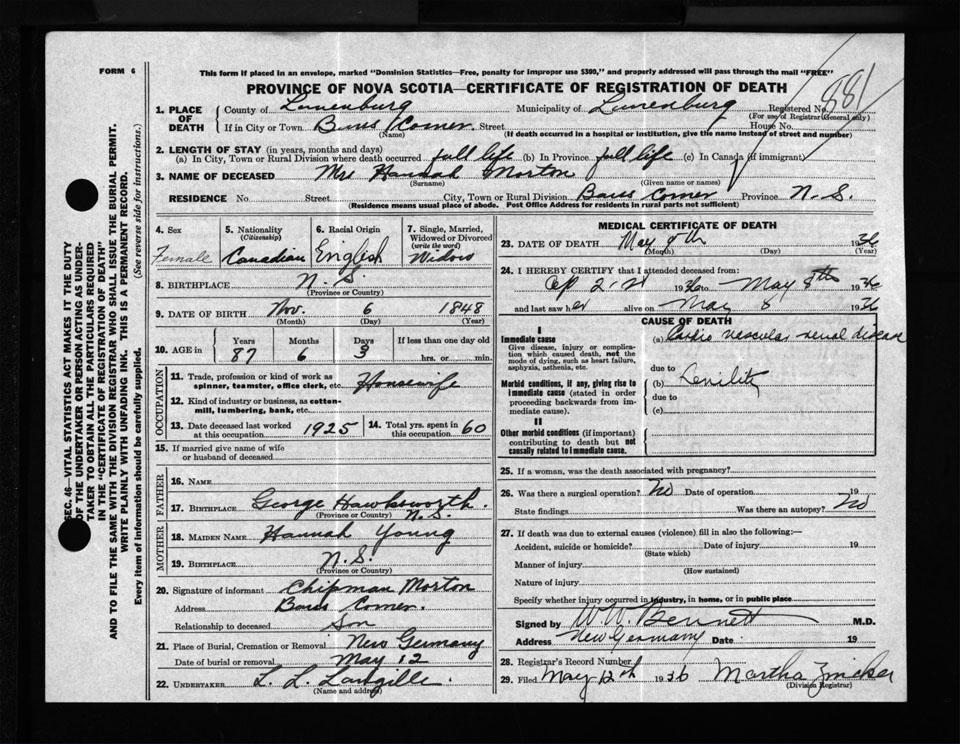 FORM 6
This form if placed in an envelope, marked "Dominion Statistics—Free, penalty for improper use $300," and properly addressed will pass through the mail "FREE"
PROVINCE OF NOVA SCOTIA—CERTIFICATE OF REGISTRATION OF DEATH
881
1. PLACE OF DEATH
County of Lunenburg Municipality of Lunenburg Registered No.
(For use of Registrar General only)
If in City or Town Corner Street House No.
(Name) (If death occurred in a hospital or institution, give the name instead of street and number)
2. LENGTH OF STAY (in years, months and days)
(a) In City, Town or Rural Division where death occurred full life (b) In Province full life (c) In Canada (if immigrant)
3. NAME OF DECEASED Mrs Hannah Morton
(Surname) (Given name or names)
RESIDENCE No Street City, Town or Rural Division Corner Province N.S.
(Residence means usual place of abode. Post Office Address for residents in rural parts not sufficient)
4. Sex Female
5. Nationality (Citizenship) Canadian
6. Racial Origin English
7. Single, Married, Widowed or Divorced (write the word) Widow
8. BIRTHPLACE N.S.
(Province or Country)
9. DATE OF BIRTH Nov. 6 1848
(Month) (Day) (Year)
10. AGE in Years Months Days If less than one day old
87 6 3 hrs. or min.
OCCUPATION
11. Trade, profession or kind of work as spinner, teamster, office clerk, etc. Housewife
12. Kind of industry or business, as cotton-mill, lumbering, bank, etc.
13. Date deceased last worked at this occupation 1925
14. Total yrs. spent in this occupation 60
15. If married give name of wife or husband of deceased
FATHER
16. NAME
17. BIRTHPLACE George Hawksworth. N.S.
(Province or Country)
MOTHER
18. MAIDEN NAME Hannah Young
19. BIRTHPLACE N.S.
(Province or Country)
20. Signature of informant Chipman Morton
Address Corner.
Relationship to deceased Son
21. Place of Burial, Cremation or Removal New Germany
Date of burial or removal May 12
22. UNDERTAKER L. L.
(Name and address)
MEDICAL CERTIFICATE OF DEATH
23. DATE OF DEATH May 8th 1936
(Month) (Day) (Year)
24. I HEREBY CERTIFY that I attended deceased from:
Ap 2 1936 to May 8th 1936
and last saw her alive on May 8 1936
CAUSE OF DEATH
I
Immediate cause
Give disease, injury or complication which caused death, not the mode of dying, such as heart failure, asphyxia, asthenia, etc.
(a) Cardio vascular renal disease
due to
Morbid conditions, if any, giving rise to immediate cause (stated in order proceeding backwards from immediate cause).
(b) Senility
due to
(c)
II
Other morbid conditions (if important) contributing to death but not causally related to immediate cause.
25. If a woman, was the death associated with pregnancy?
26. Was there a surgical operation? No Date of operation 19
State findings Was there an autopsy? No
27. If death was due to external causes (violence) fill in also the following:—
Accident, suicide or homicide? Date of injury 19
(State which)
Manner of injury
(How sustained)
Nature of injury
Specify whether injury occurred in industry, in home, or in public place
Signed by W.W. Bennett M.D.
Address New Germany Date 19
28. Registrar's Record Number
29. Filed May 12th 1936 Martha Zwicker
(Division Registrar)
SEC. 46—VITAL STATISTICS ACT MAKES IT THE DUTY
OF THE UNDERTAKER OR PERSON ACTING AS UNDER-
TAKER TO OBTAIN ALL THE PARTICULARS REQUIRED
IN THE "CERTIFICATE OF REGISTRATION OF DEATH"
AND TO FILE THE SAME WITH THE DIVISION REGISTRAR WHO SHALL ISSUE THE BURIAL PERMIT.
WRITE PLAINLY WITH UNFADING INK. THIS IS A PERMANENT RECORD.
Every item of information should be carefully supplied. (See reverse side for instructions.)